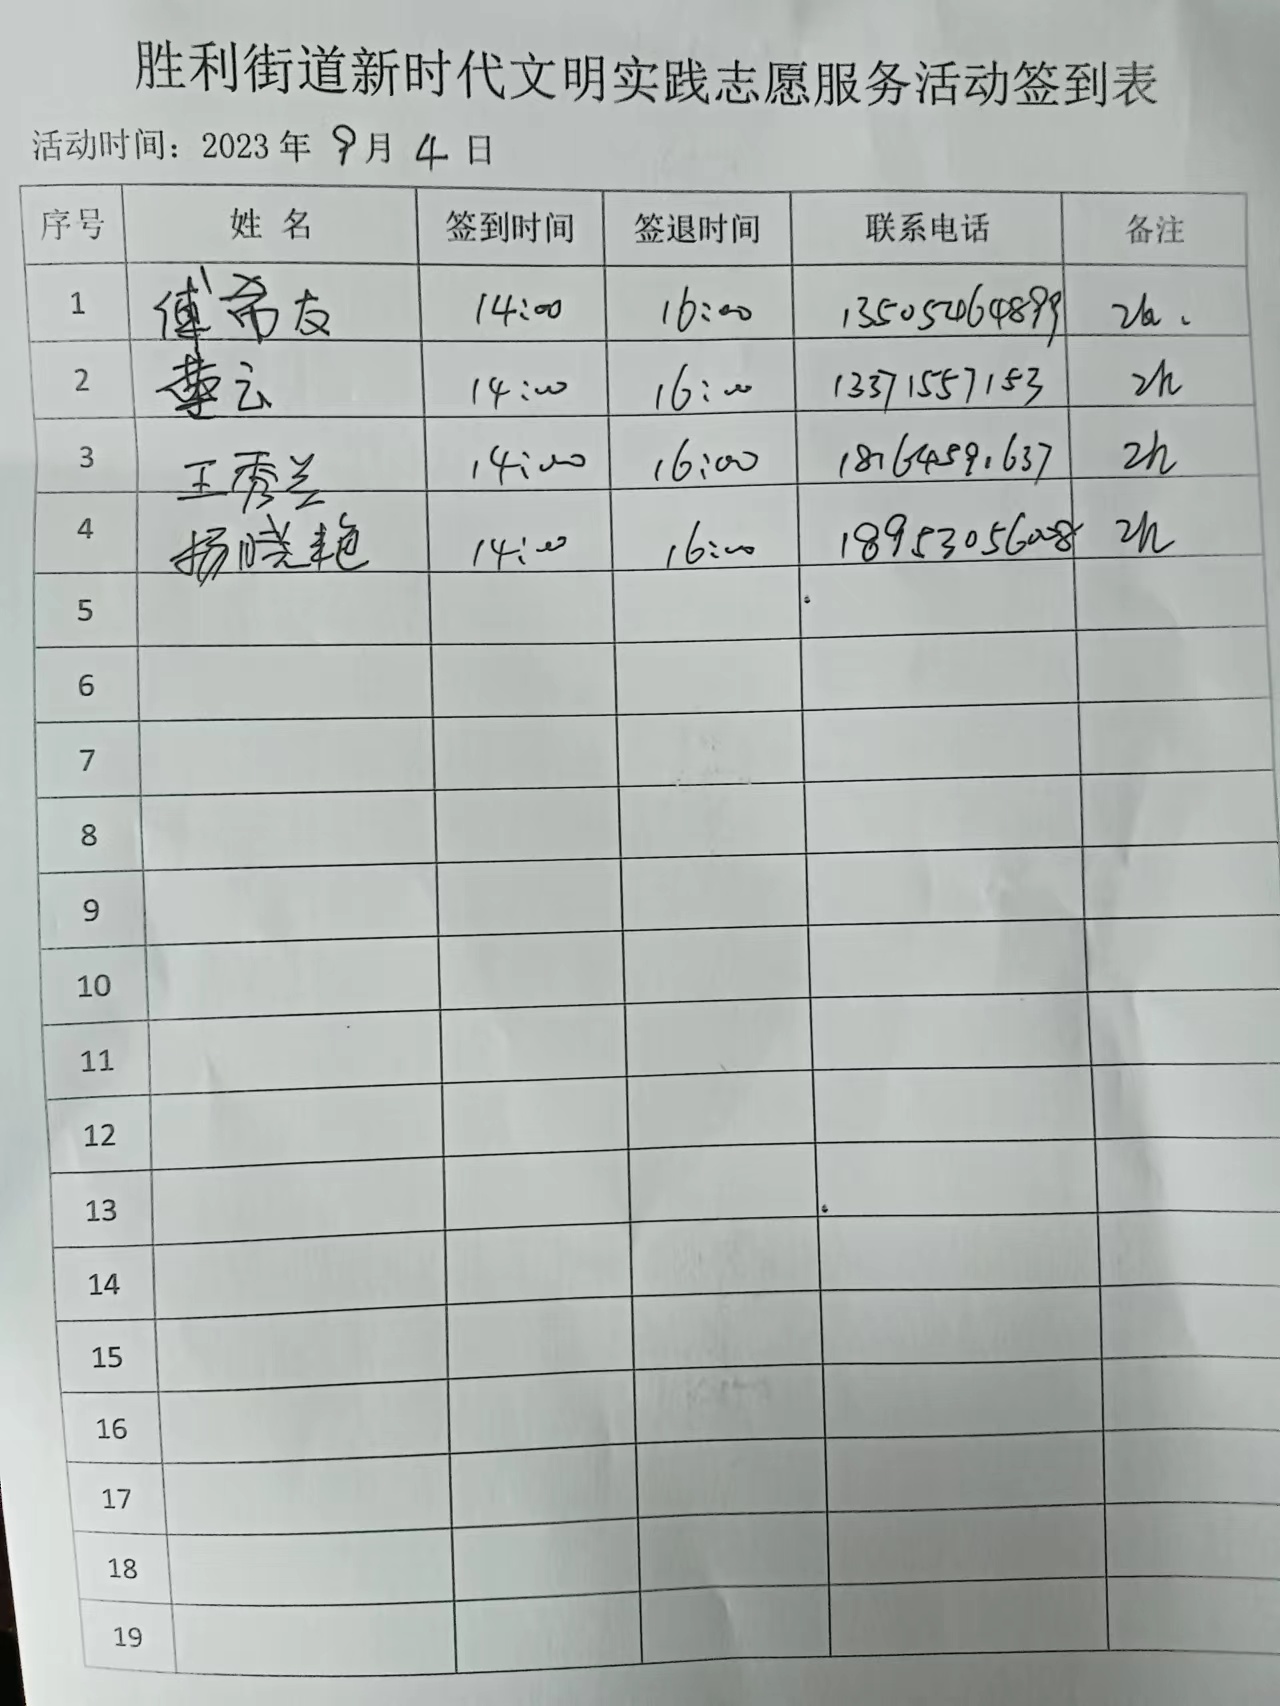 胜利街道新时代文明实践志愿服务活动签到表
活动时间：2023 年 9 月 4 日
序号 姓 名 签到时间 签退时间 联系电话 备注
1 傅希友 14:00 16:00 13505464899
2 云 14:00 16:00 13371557153 2h
3 王秀兰 14:00 16:00 2h
4 杨晓艳 14:00 16:00 18953056008 2h
5
6
7
8
9
10
11
12
13
14
15
16
17
18
19